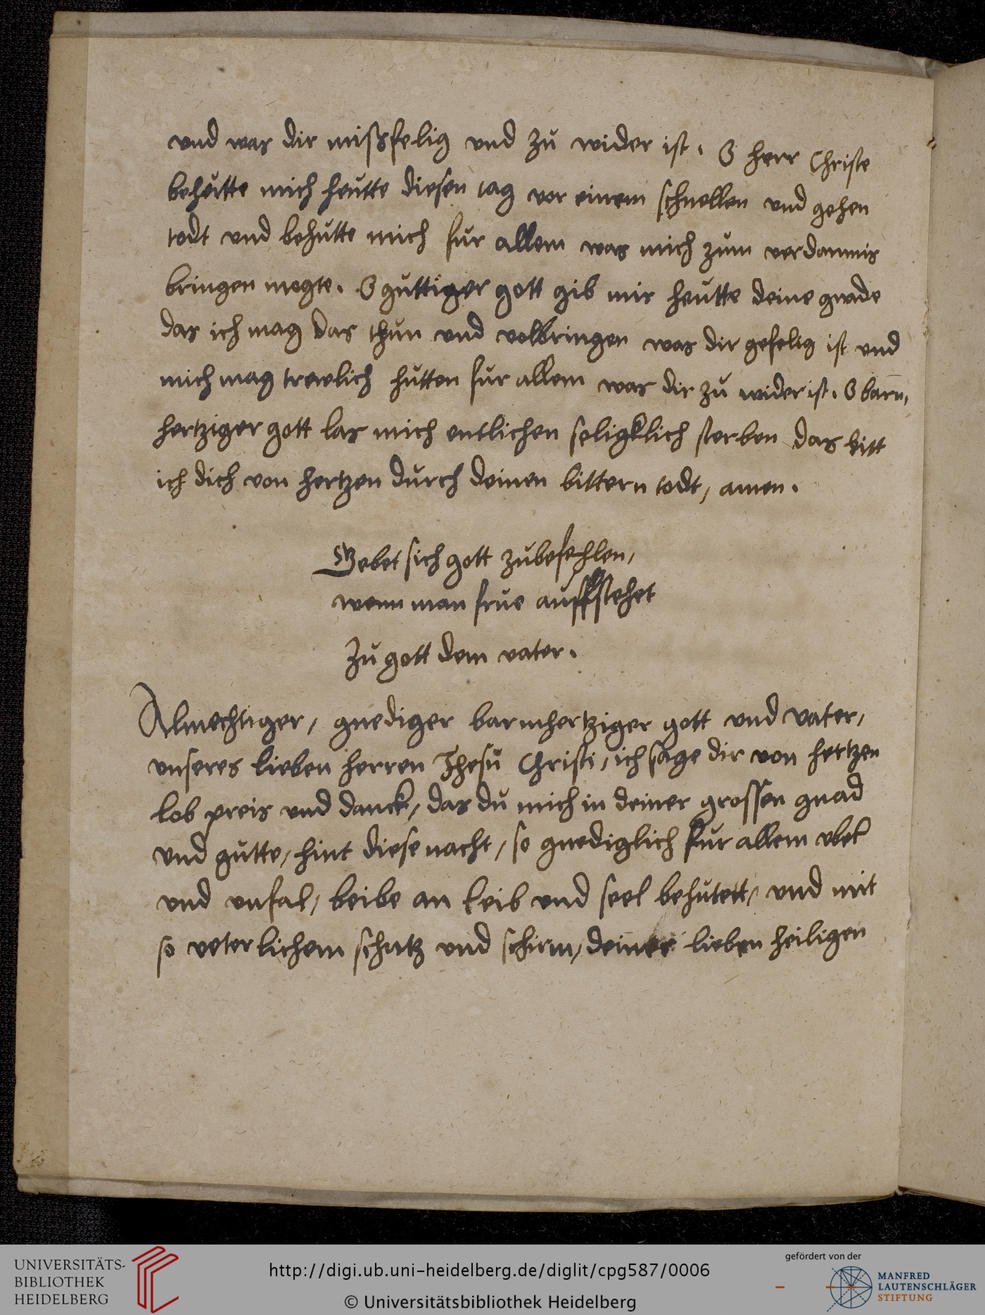 vnd was dir missfelig vnd zů wider ist. O herr Christe
behůtte mich heutte diesen tag vor einem schnellen vnd gehen
todt vnd behůtte mich fur allem was mich zum verdamnis
bringen mogte. O gůttiger gott gib mir heůtte deine gnade
das ich mag das thun vnd volbringen was dir gefelig ist vnd
mich mag trewlich hůtten fur allem was dir zů wider ist. O barm,
hertziger gott las mich entlichen seligklich sterben das bitt
ich dich von hertzen důrch deinen bittern todt, amen.
Gebet sich gott zůbefehlen,
wenn man frue auffstehet
Zů gott dem vater.
Almechtiger, gnediger barmhertziger gott vnd vater,
vnseres lieben herren Jhesů Christi, ich sage dir von hertzen
lob preis vnd danck, das dů mich in deiner grossen gnad
vnd gůtte, hint diese nacht, so gnediglich fur allem vbel
vnd vnfal, beide an leib vnd seel behůtett, vnd mit
so veterlichem schutz vnd schirm, deiner lieben heiligen
UNIVERSITÄTS-
BIBLIOTHEK
HEIDELBERG
http://digi.ub.uni-heidelberg.de/diglit/cpg587/0006
© Universitätsbibliothek Heidelberg
gefördert von der
MANFRED
LAUTENSCHLÄGER
STIFTUNG